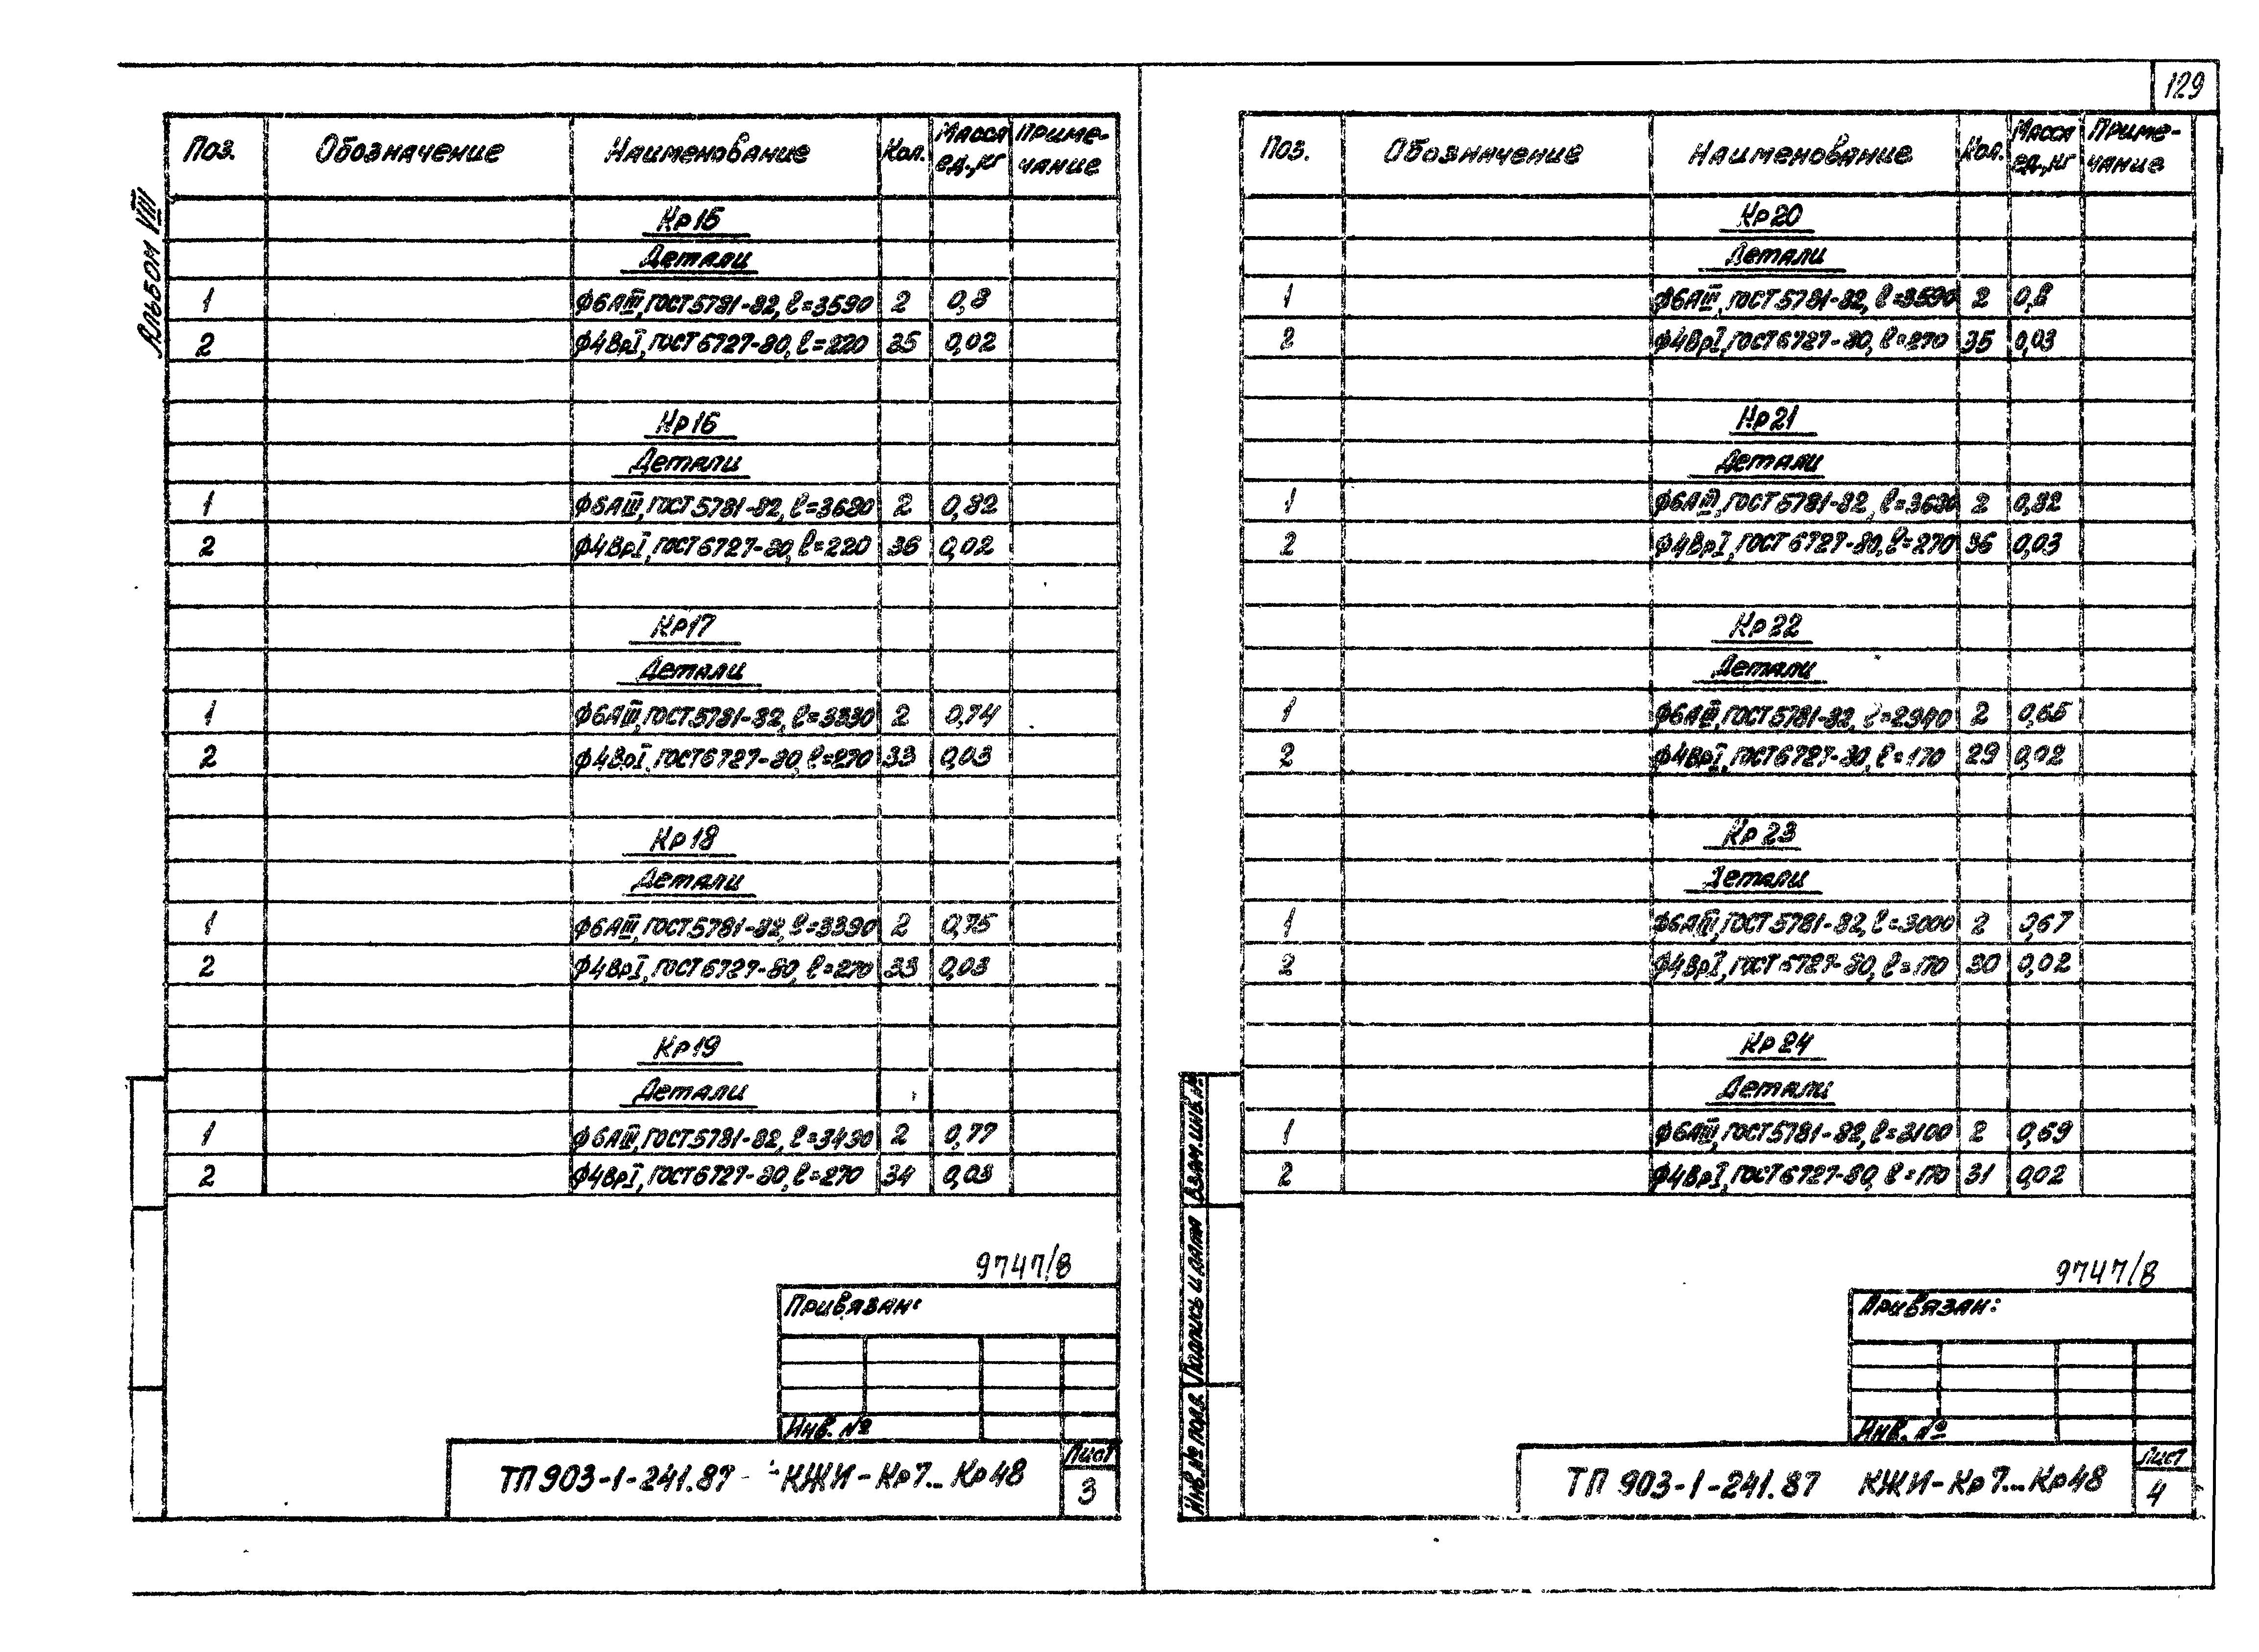 129
Альбом VIII
Поз. Обозначение Наименование Кол. Масса ед., кг Приме-чание
Кр15
Детали
1 Ф6АIII, ГОСТ 5781-82, ℓ=3590 2 0,8
2 Ф4ВрI, ГОСТ 6727-80, ℓ=220 35 0,02
Кр16
Детали
1 Ф6АIII, ГОСТ 5781-82, ℓ=3680 2 0,82
2 Ф4ВрI, ГОСТ 6727-80, ℓ=220 36 0,02
Кр17
Детали
1 Ф6АIII, ГОСТ 5781-82, ℓ=3330 2 0,74
2 Ф4ВрI, ГОСТ 6727-80, ℓ=270 33 0,03
Кр18
Детали
1 Ф6АIII, ГОСТ 5781-82, ℓ=3390 2 0,75
2 Ф4ВрI, ГОСТ 6727-80, ℓ=270 33 0,03
Кр19
Детали
1 Ф6АIII, ГОСТ 5781-82, ℓ=3490 2 0,77
2 Ф4ВрI, ГОСТ 6727-80, ℓ=270 34 0,03
9747/8
Привязан:
Инв. №
ТП 903-1-241.87 - КЖИ-Кр7...Кр48
Лист
3
Поз. Обозначение Наименование Кол. Масса ед., кг Приме-чание
Кр20
Детали
1 Ф6АIII, ГОСТ 5781-82, ℓ=3590 2 0,8
2 Ф4ВрI, ГОСТ 6727-80, ℓ=270 35 0,03
Кр21
Детали
1 Ф6АIII, ГОСТ 5781-82, ℓ=3680 2 0,82
2 Ф4ВрI, ГОСТ 6727-80, ℓ=270 36 0,03
Кр22
Детали
1 Ф6АIII, ГОСТ 5781-82, ℓ=2940 2 0,65
2 Ф4ВрI, ГОСТ 6727-80, ℓ=170 29 0,02
Кр23
Детали
1 Ф6АIII, ГОСТ 5781-82, ℓ=3000 2 0,67
2 Ф4ВрI, ГОСТ 6727-80, ℓ=170 30 0,02
Кр24
Детали
1 Ф6АIII, ГОСТ 5781-82, ℓ=3100 2 0,69
2 Ф4ВрI, ГОСТ 6727-80, ℓ=170 31 0,02
Взам. инв. №
Подпись и дата
Инв. № подл.
9747/8
Привязан:
Инв. №
ТП 903-1-241.87 КЖИ-Кр7...Кр48
Лист
4